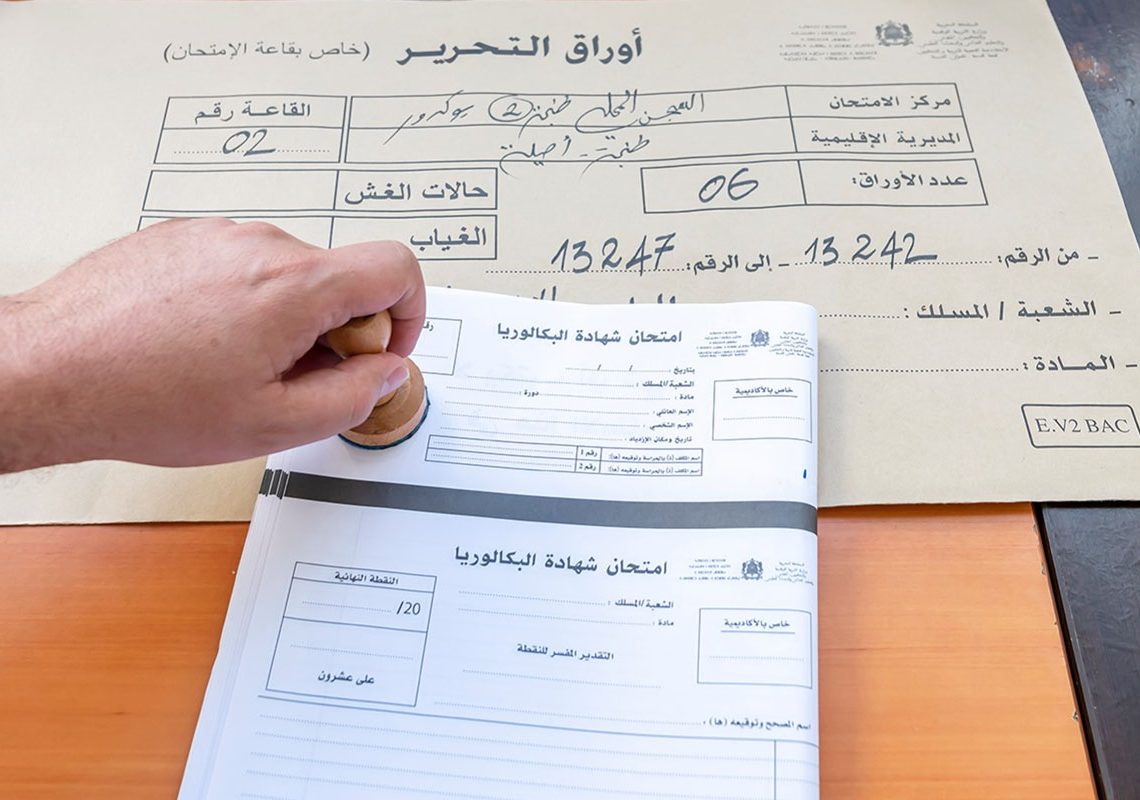 أوراق التحرير (خاص بقاعة الإمتحان)
مركز الامتحان السجن المحلي طنجة 2
المديرية الإقليمية طنجة - أصيلة
القاعة رقم
02
عدد الأوراق: 06
حالات الغش
الغياب
- من الرقم: 13242 - إلى الرقم: 13247
- الشعبة / المسلك :
- المادة :
E.V2 BAC
امتحان شهادة البكالوريا
خاص بالأكاديمية
بتاريخ / /
الشعبة/المسلك :
مادة : دورة :
الإسم العائلي :
الإسم الشخصي :
تاريخ ومكان الإزدياد :
اسم المكلف (ة) بالحراسة وتوقيعه (ها): رقم 1
اسم المكلف (ة) بالحراسة وتوقيعه (ها): رقم 2
امتحان شهادة البكالوريا
خاص بالأكاديمية
الشعبة/المسلك :
مادة :
التقدير المفسر للنقطة
النقطة النهائية
/20
على عشرون
اسم المصحح وتوقيعه (ها) :